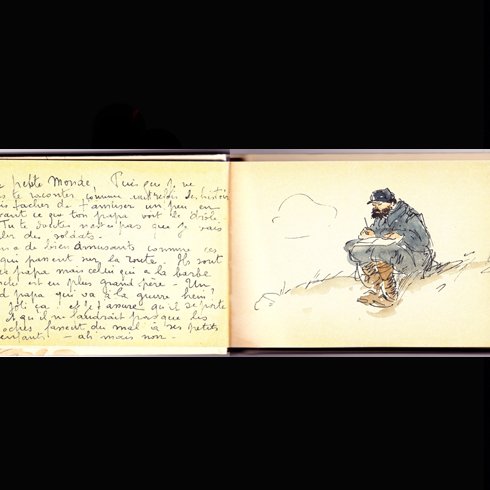 petite Monde, Puis que je ne
te raconter comme autrefois des histoir
tacher de t'amuser un peu en
ce que ton papa voit de drôle.
Tu te doutes n'est-ce pas que je vais
des soldats.
en a de bien amusants comme ces
qui passent sur la route. Ils sont
papa mais celui qui a la barbe
est en plus grand-père - Un
d papa qui va à la guerre hein!
joli ça! et je t'assure qu'il se porte
Et qu'il ne faudrait pas que les
oches fassent du mal à ses petits
enfants - ah mais non.